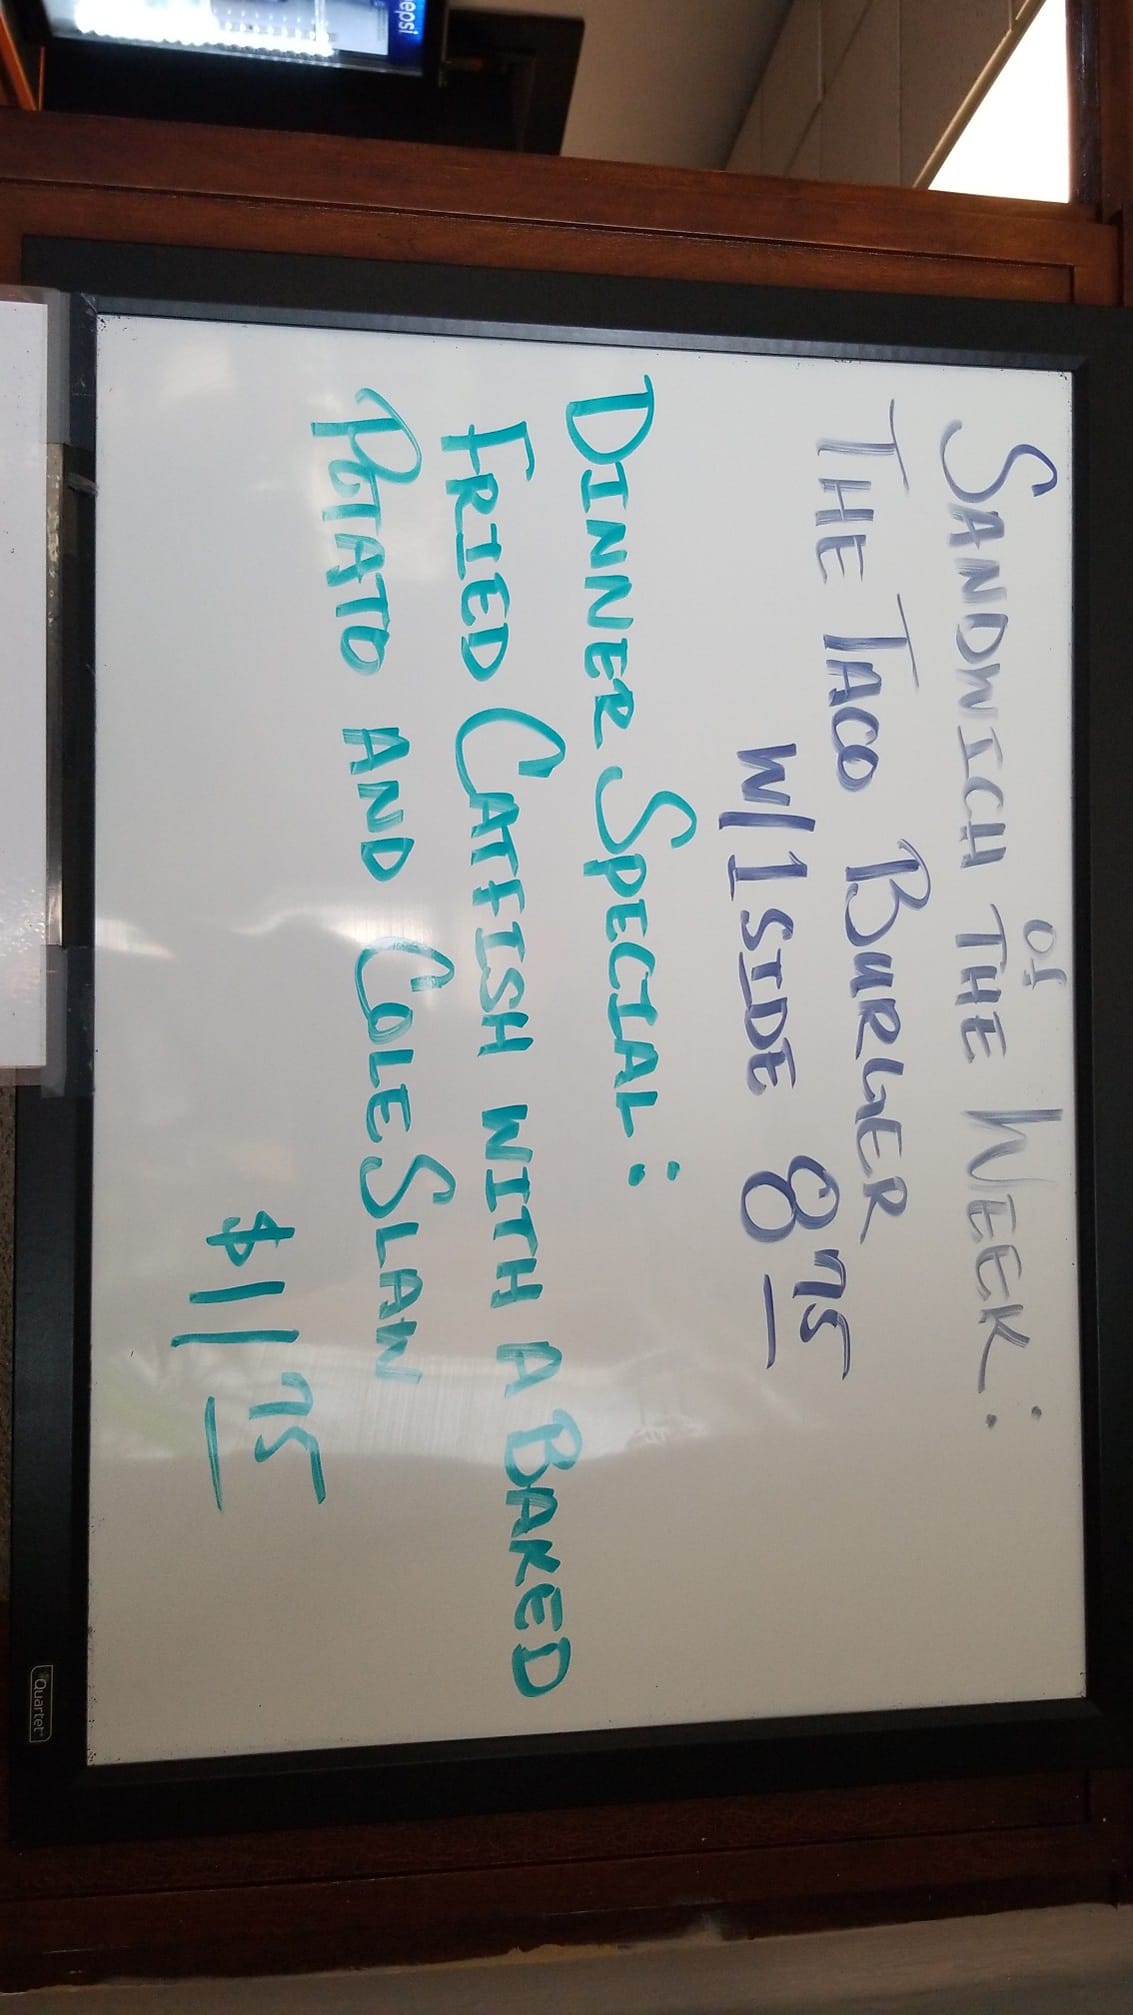 epsi
SANDWICH of THE WEEK:
THE TACO BURGER
W/1 SIDE 8 75
DINNER SPECIAL:
FRIED CATFISH WITH A BAKED
POTATO AND COLE SLAW
$11 75
Quartet